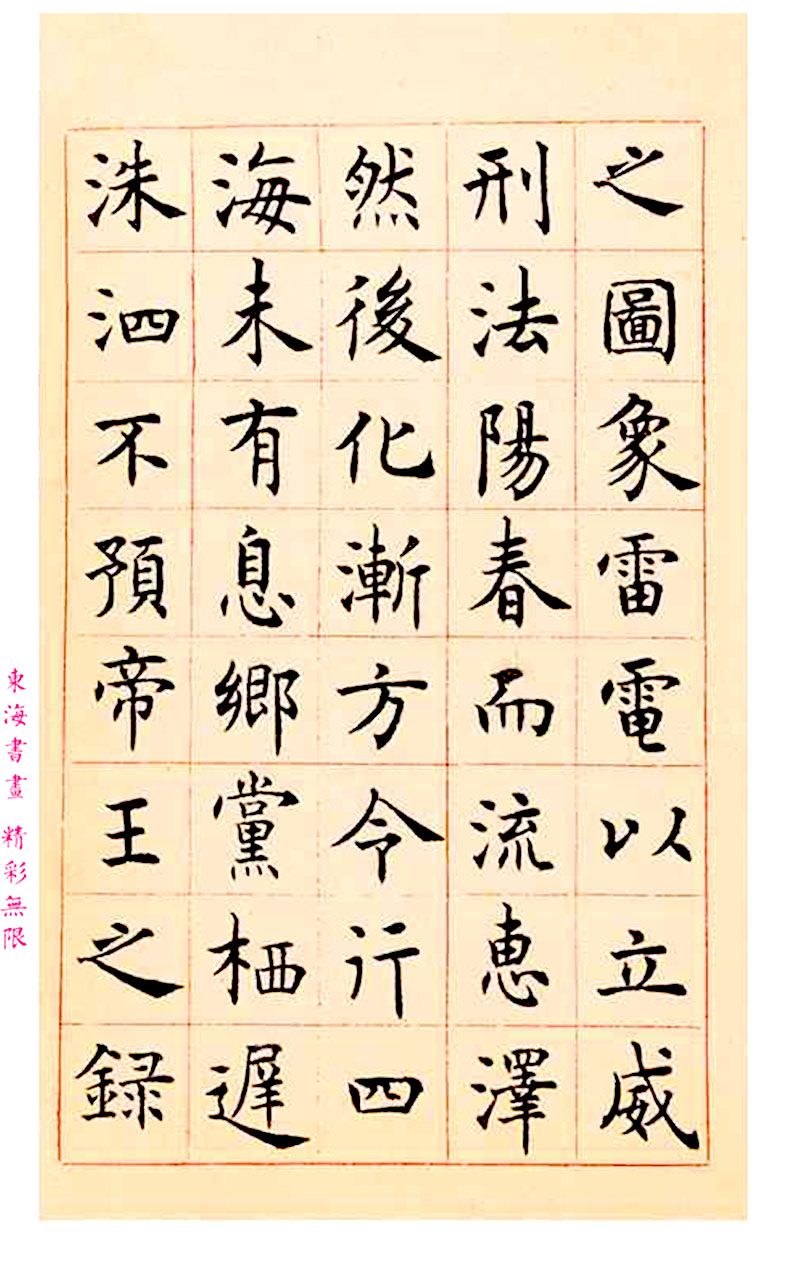 之圖象雷電以立威
刑法陽春而流惠澤
然後化漸方令行四
海未有息鄉黨栖遲
洙泗不預帝王之録
東海書畫 精彩無限